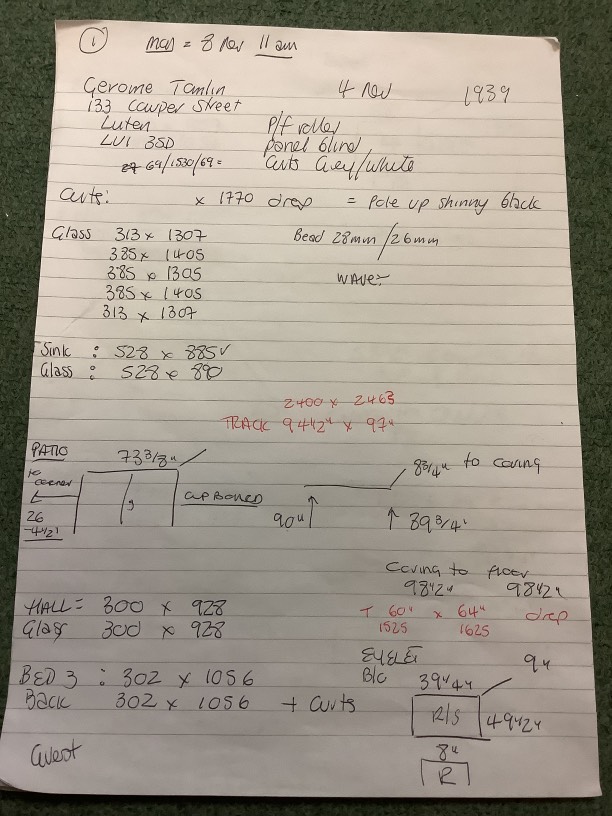 1 man = 8 Nov 11 am
Gerome Tamlin 4 Nov 1939
133 Cowper Street
Luten P/f roller
LU1 3SD panel blind
69/1530/69= Curts Grey/White
Curts: x 1770 drop = Pole up shinny black
Glass 313 x 1307 Bead 28mm/26mm
385 x 1405
385 x 1305 WAVE:
385 x 1405
313 x 1307
Sink : 528 x 885√
Glass : 528 x 890
2400 x 2463
TRACK 94 1/2" x 97"
PATIO 73 3/8" 8 3/4" to coving
to corner
CUPBOARD 90" 89 3/4"
26
-4 1/2"
Coving to floor
98 1/2" 98 1/2"
HALL = 300 x 928 T 60" x 64" drop
Glass 300 x 928 1525 1625
EYELET 9"
BED 3 : 302 x 1056 B/c 39 1/4"
Back 302 x 1056 + Curts R/S 49 1/2"
8"
R